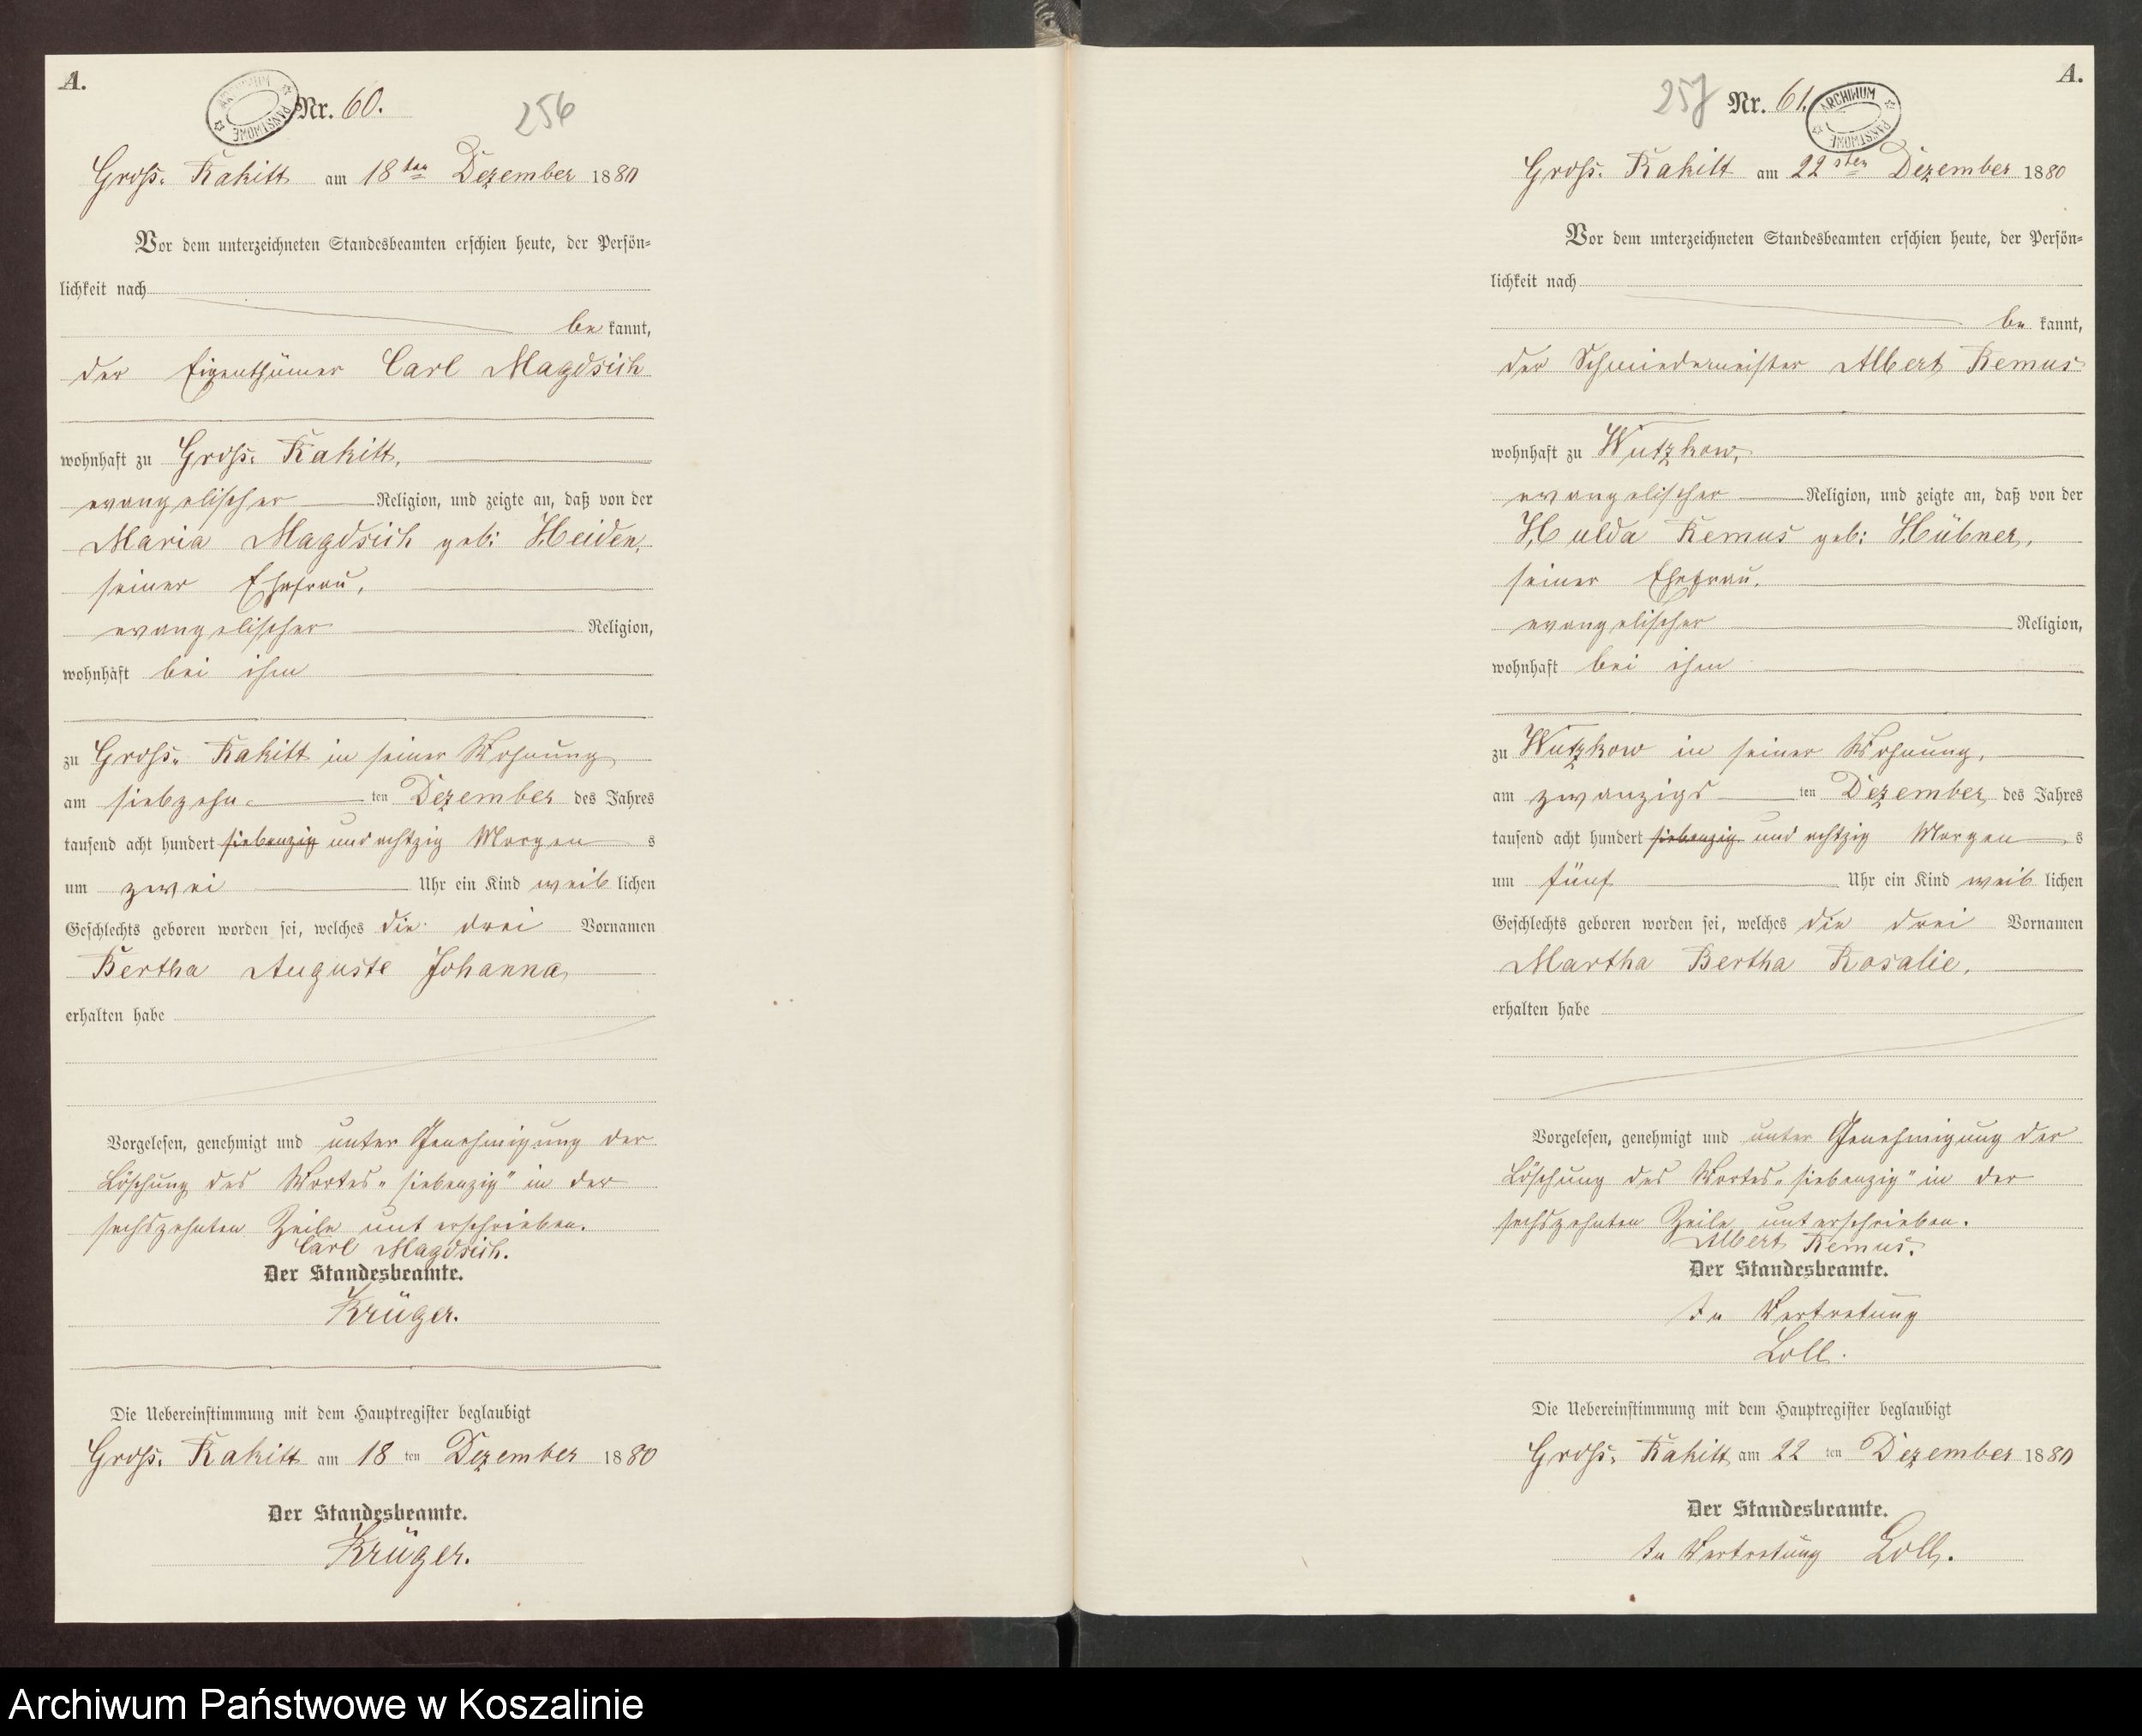 A.
Nr. 60.
256
Groß. Rakitt am 18ten Dezember 1880
Vor dem unterzeichneten Standesbeamten erschien heute, der Persön=
lichkeit nach
be kannt,
der Eigenthümer Carl Magdsich
wohnhaft zu Groß. Rakitt,
evangelischer Religion, und zeigte an, daß von der
Maria Magdsich geb: Heiden,
seiner Ehefrau,
evangelischer Religion,
wohnhaft bei ihm
zu Groß. Rakitt in seiner Wohnung
am siebzehn ten Dezember des Jahres
tausend acht hundert siebenzig und achtzig Morgen s
um zwei Uhr ein Kind weib lichen
Geschlechts geboren worden sei, welches die drei Vornamen
Bertha Auguste Johanna
erhalten habe
Vorgelesen, genehmigt und unter Genehmigung der
Löschung des Wortes „siebenzig" in der
sechszehnten Zeile unterschrieben.
Carl Magdsich.
Der Standesbeamte.
Krüger.
Die Uebereinstimmung mit dem Hauptregister beglaubigt
Groß. Rakitt am 18 ten Dezember 1880
Der Standesbeamte.
Krüger.
A.
257
Nr. 61.
ARCHIWUM PAŃSTWOWE
Groß. Rakitt am 22sten Dezember 1880
Vor dem unterzeichneten Standesbeamten erschien heute, der Persön=
lichkeit nach
be kannt,
der Schmiedemeister Albert Remus
wohnhaft zu Wutzkow,
evangelischer Religion, und zeigte an, daß von der
Hulda Remus geb: Hübner,
seiner Ehefrau,
evangelischer Religion,
wohnhaft bei ihm
zu Wutzkow in seiner Wohnung,
am zwanzigs ten Dezember des Jahres
tausend acht hundert siebenzig und achtzig Morgen s
um fünf Uhr ein Kind weib lichen
Geschlechts geboren worden sei, welches die drei Vornamen
Martha Bertha Rosalie,
erhalten habe
Vorgelesen, genehmigt und unter Genehmigung der
Löschung des Wortes „siebenzig" in der
sechszehnten Zeile unterschrieben.
Albert Remus.
Der Standesbeamte.
In Vertretung
Loll.
Die Uebereinstimmung mit dem Hauptregister beglaubigt
Groß. Rakitt am 22 ten Dezember 1880
Der Standesbeamte.
In Vertretung Loll.
Archiwum Państwowe w Koszalinie